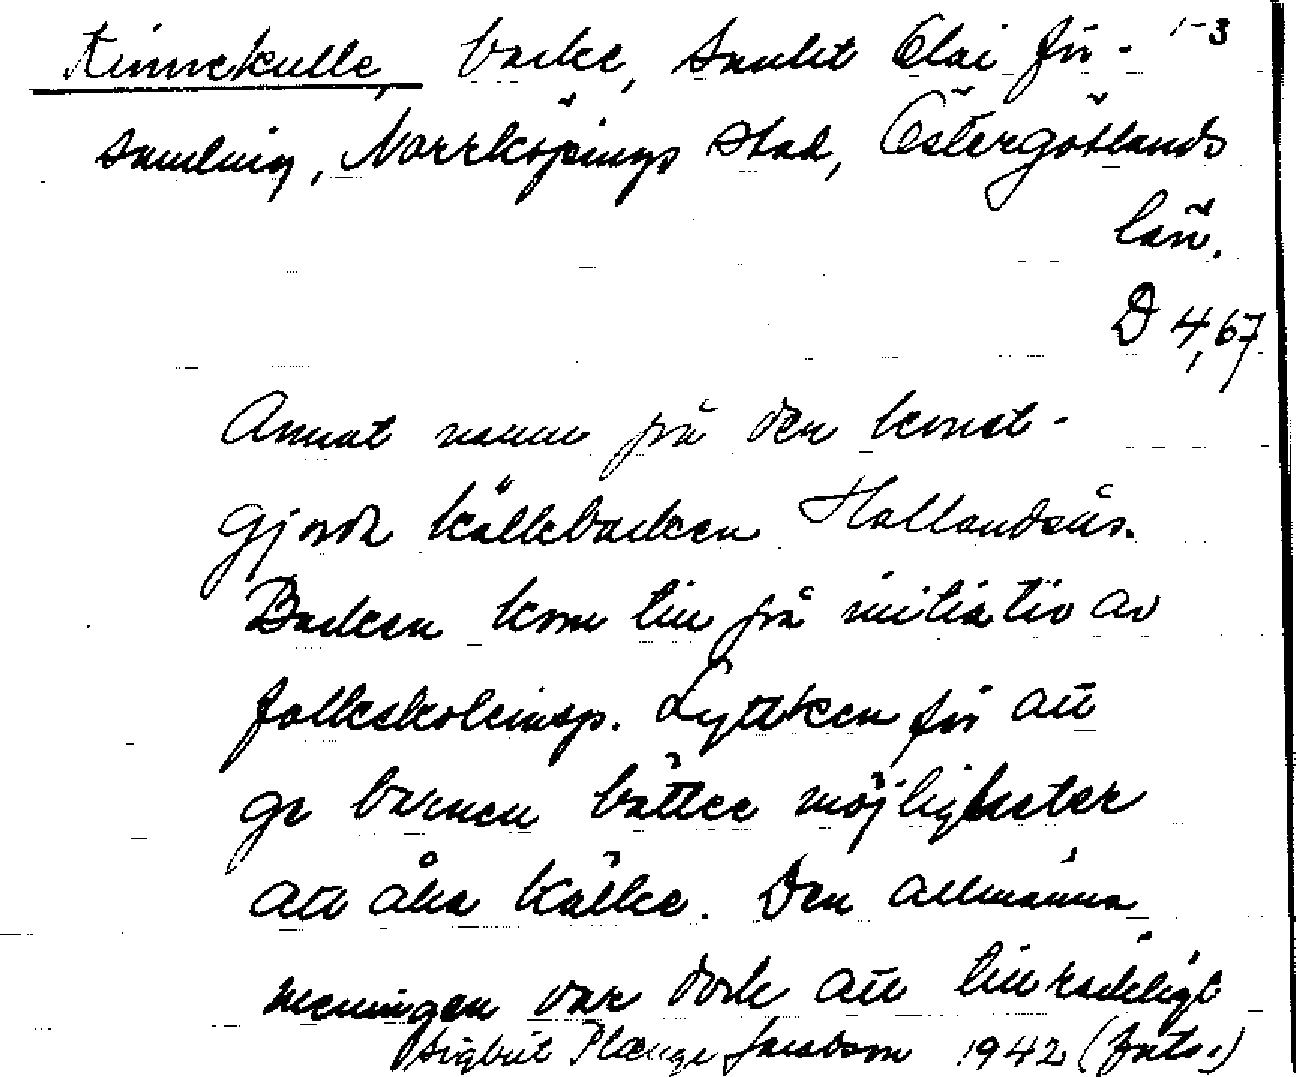 1-3
Kinnekulle, backe, Sankt Olai för-
samling, Norrköpings stad, Östergötlands
län.
D 4,67
Annat namn på den konst-
gjorda kälkbacken Hallandsås.
Backen kom till på initiativ av
folkskoleinsp. Lyttkens för att
ge barnen bättre möjligheter
att åka kälke. Den allmänna
meningen var dock att tillräckligt
Sigbrit Plænge Jacobson 1942 (forts.)